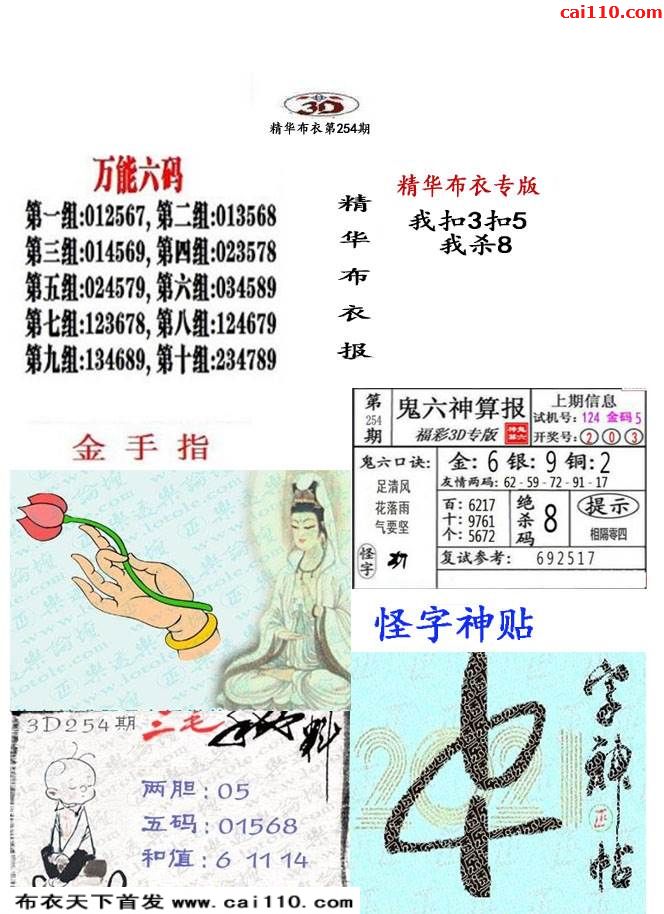 cai110.com
3D
精华布衣第254期
万能六码
第一组:012567, 第二组:013568
第三组:014569, 第四组:023578
第五组:024579, 第六组:034589
第七组:123678, 第八组:124679
第九组:134689, 第十组:234789
精华布衣报
精华布衣专版
我扣3扣5
我杀8
金手指
第254期
鬼六神算报
福彩3D专版
上期信息
试机号: 124 金码5
开奖号: 2 0 3
鬼六口诀:
足清风
花落雨
气要坚
怪字
金: 6 银: 9 铜: 2
友情两码: 62 - 59 - 72 - 91 - 17
百: 6217
十: 9761
个: 5672
绝杀码
8
提示
相隔零四
复试参考: 692517
怪字神贴
2021
字神帖
3D254期
三毛
料
两胆: 05
五码: 01568
和值: 6 11 14
布衣天下首发 www.cai110.com